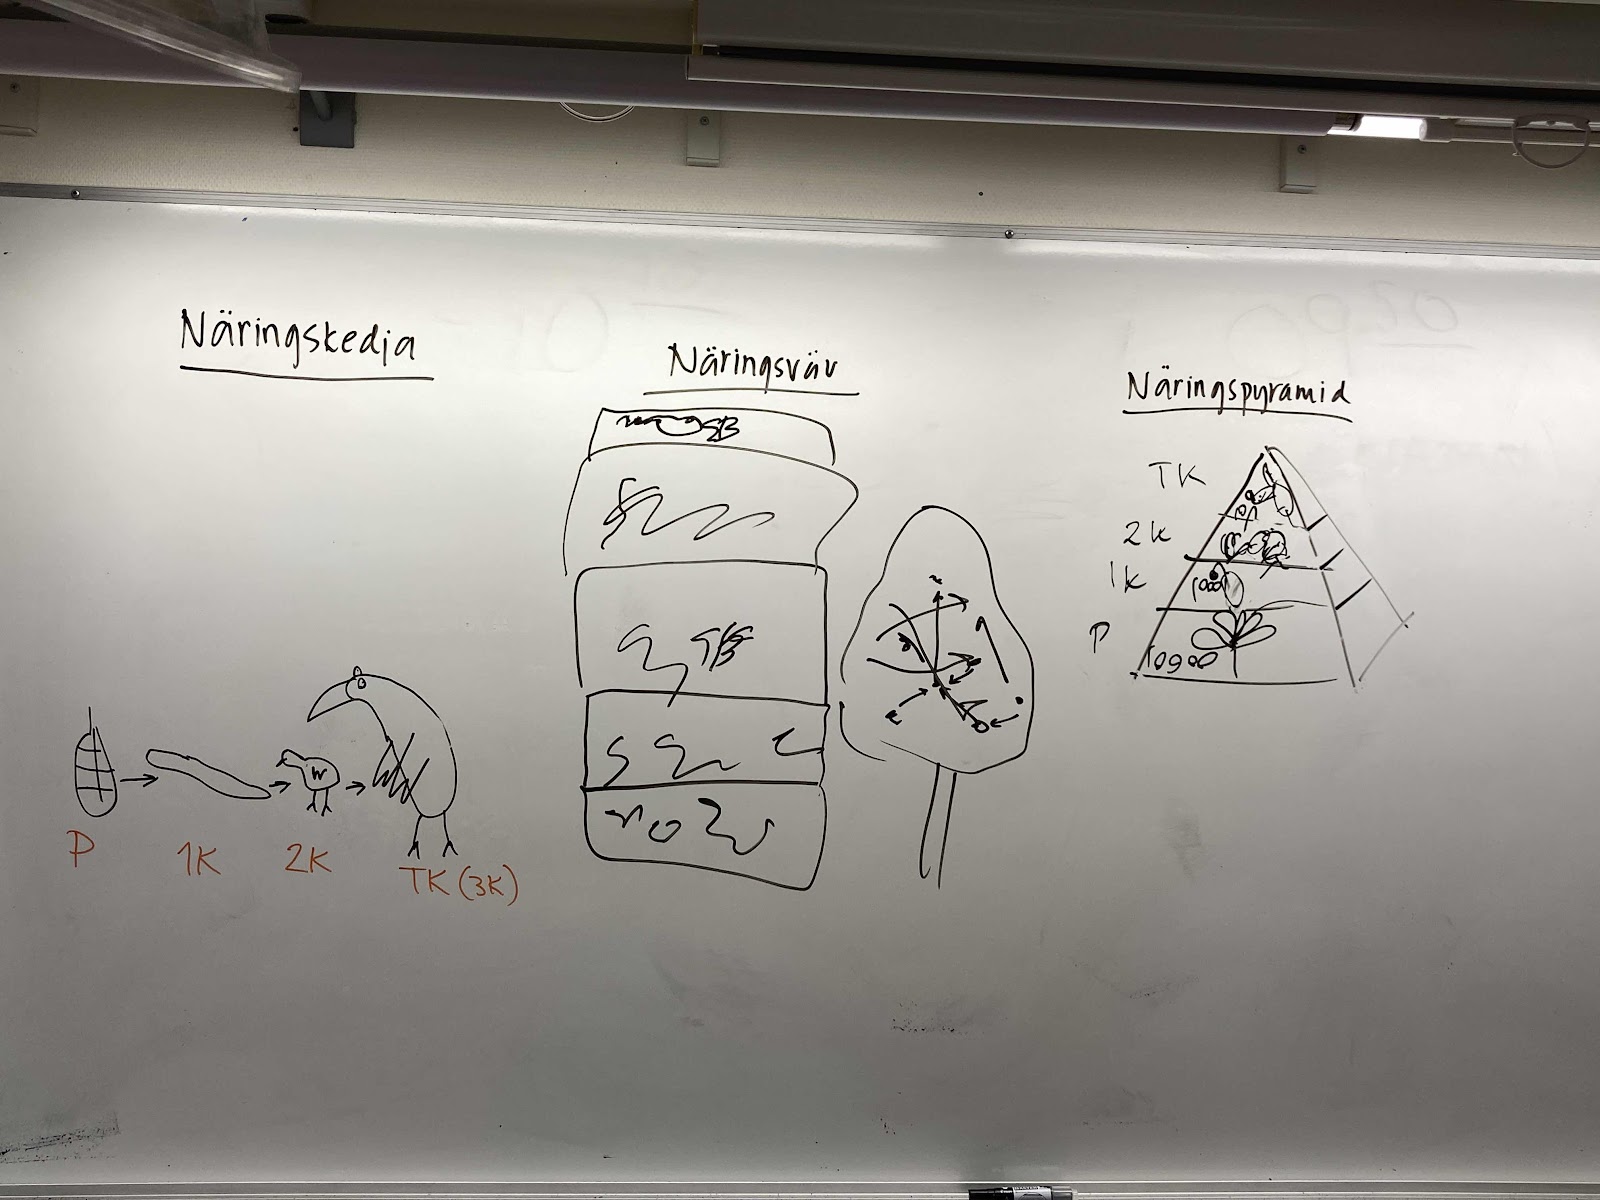 Näringskedja
P
1K
2K
TK (3K)
Näringsväv
Näringspyramid
TK
2K
1K
1000
P
10900